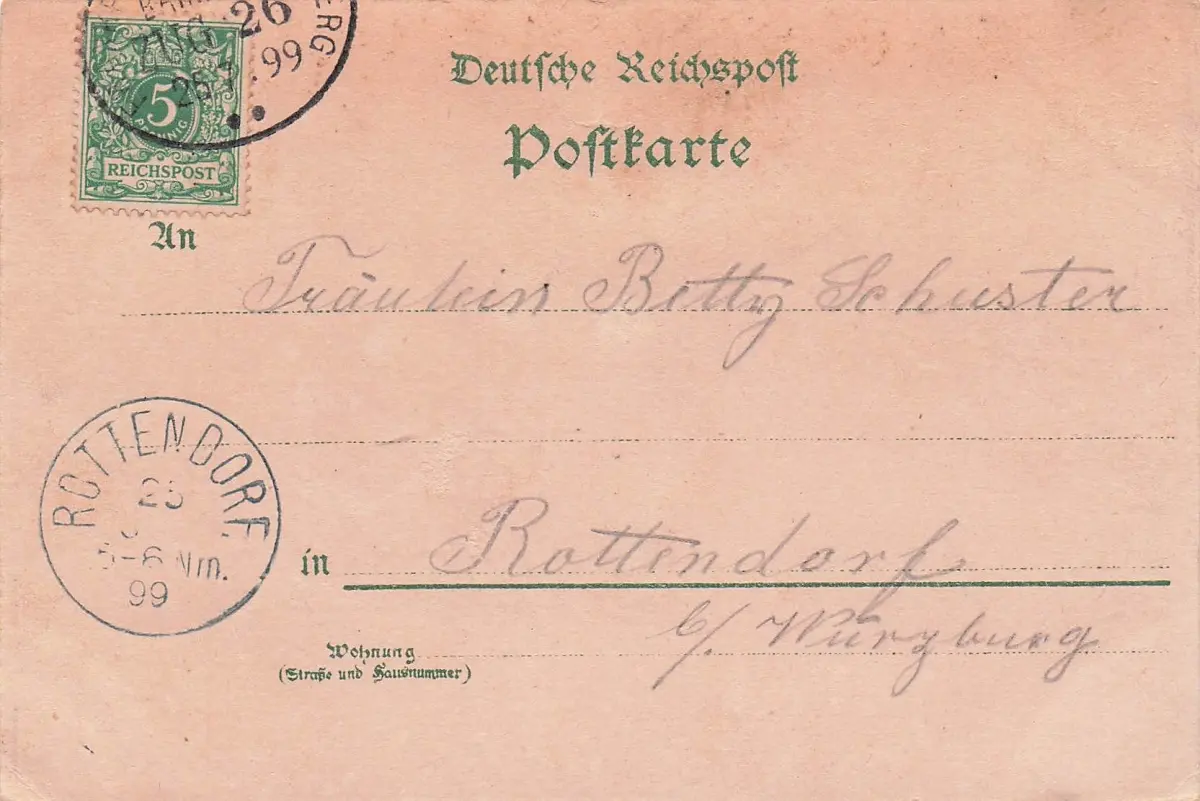 26
ERG
ZUG
25 3 99
5
PFENNIG
REICHSPOST
Deutsche Reichspost
Postkarte
An
Fräulein Betty Schuster
ROTTENDORF
25
5-6 Nm.
99
in Rottendorf
b/ Würzburg
Wohnung
(Straße und Hausnummer)